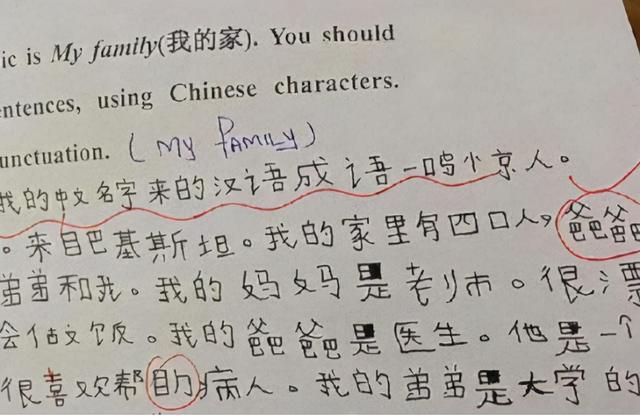 ic is My family(我的家). You should
entences, using Chinese characters.
unctuation. (MY FAMILY)
我的中文名字来的汉语成语一鸣小京人。
。来自巴基斯坦。我的家里有四口人,爸爸
弟弟和我。我的妈妈是老师。很漂
会做饭。我的爸爸是医生。他是一个
很喜欢帮助病人。我的弟弟是大学的